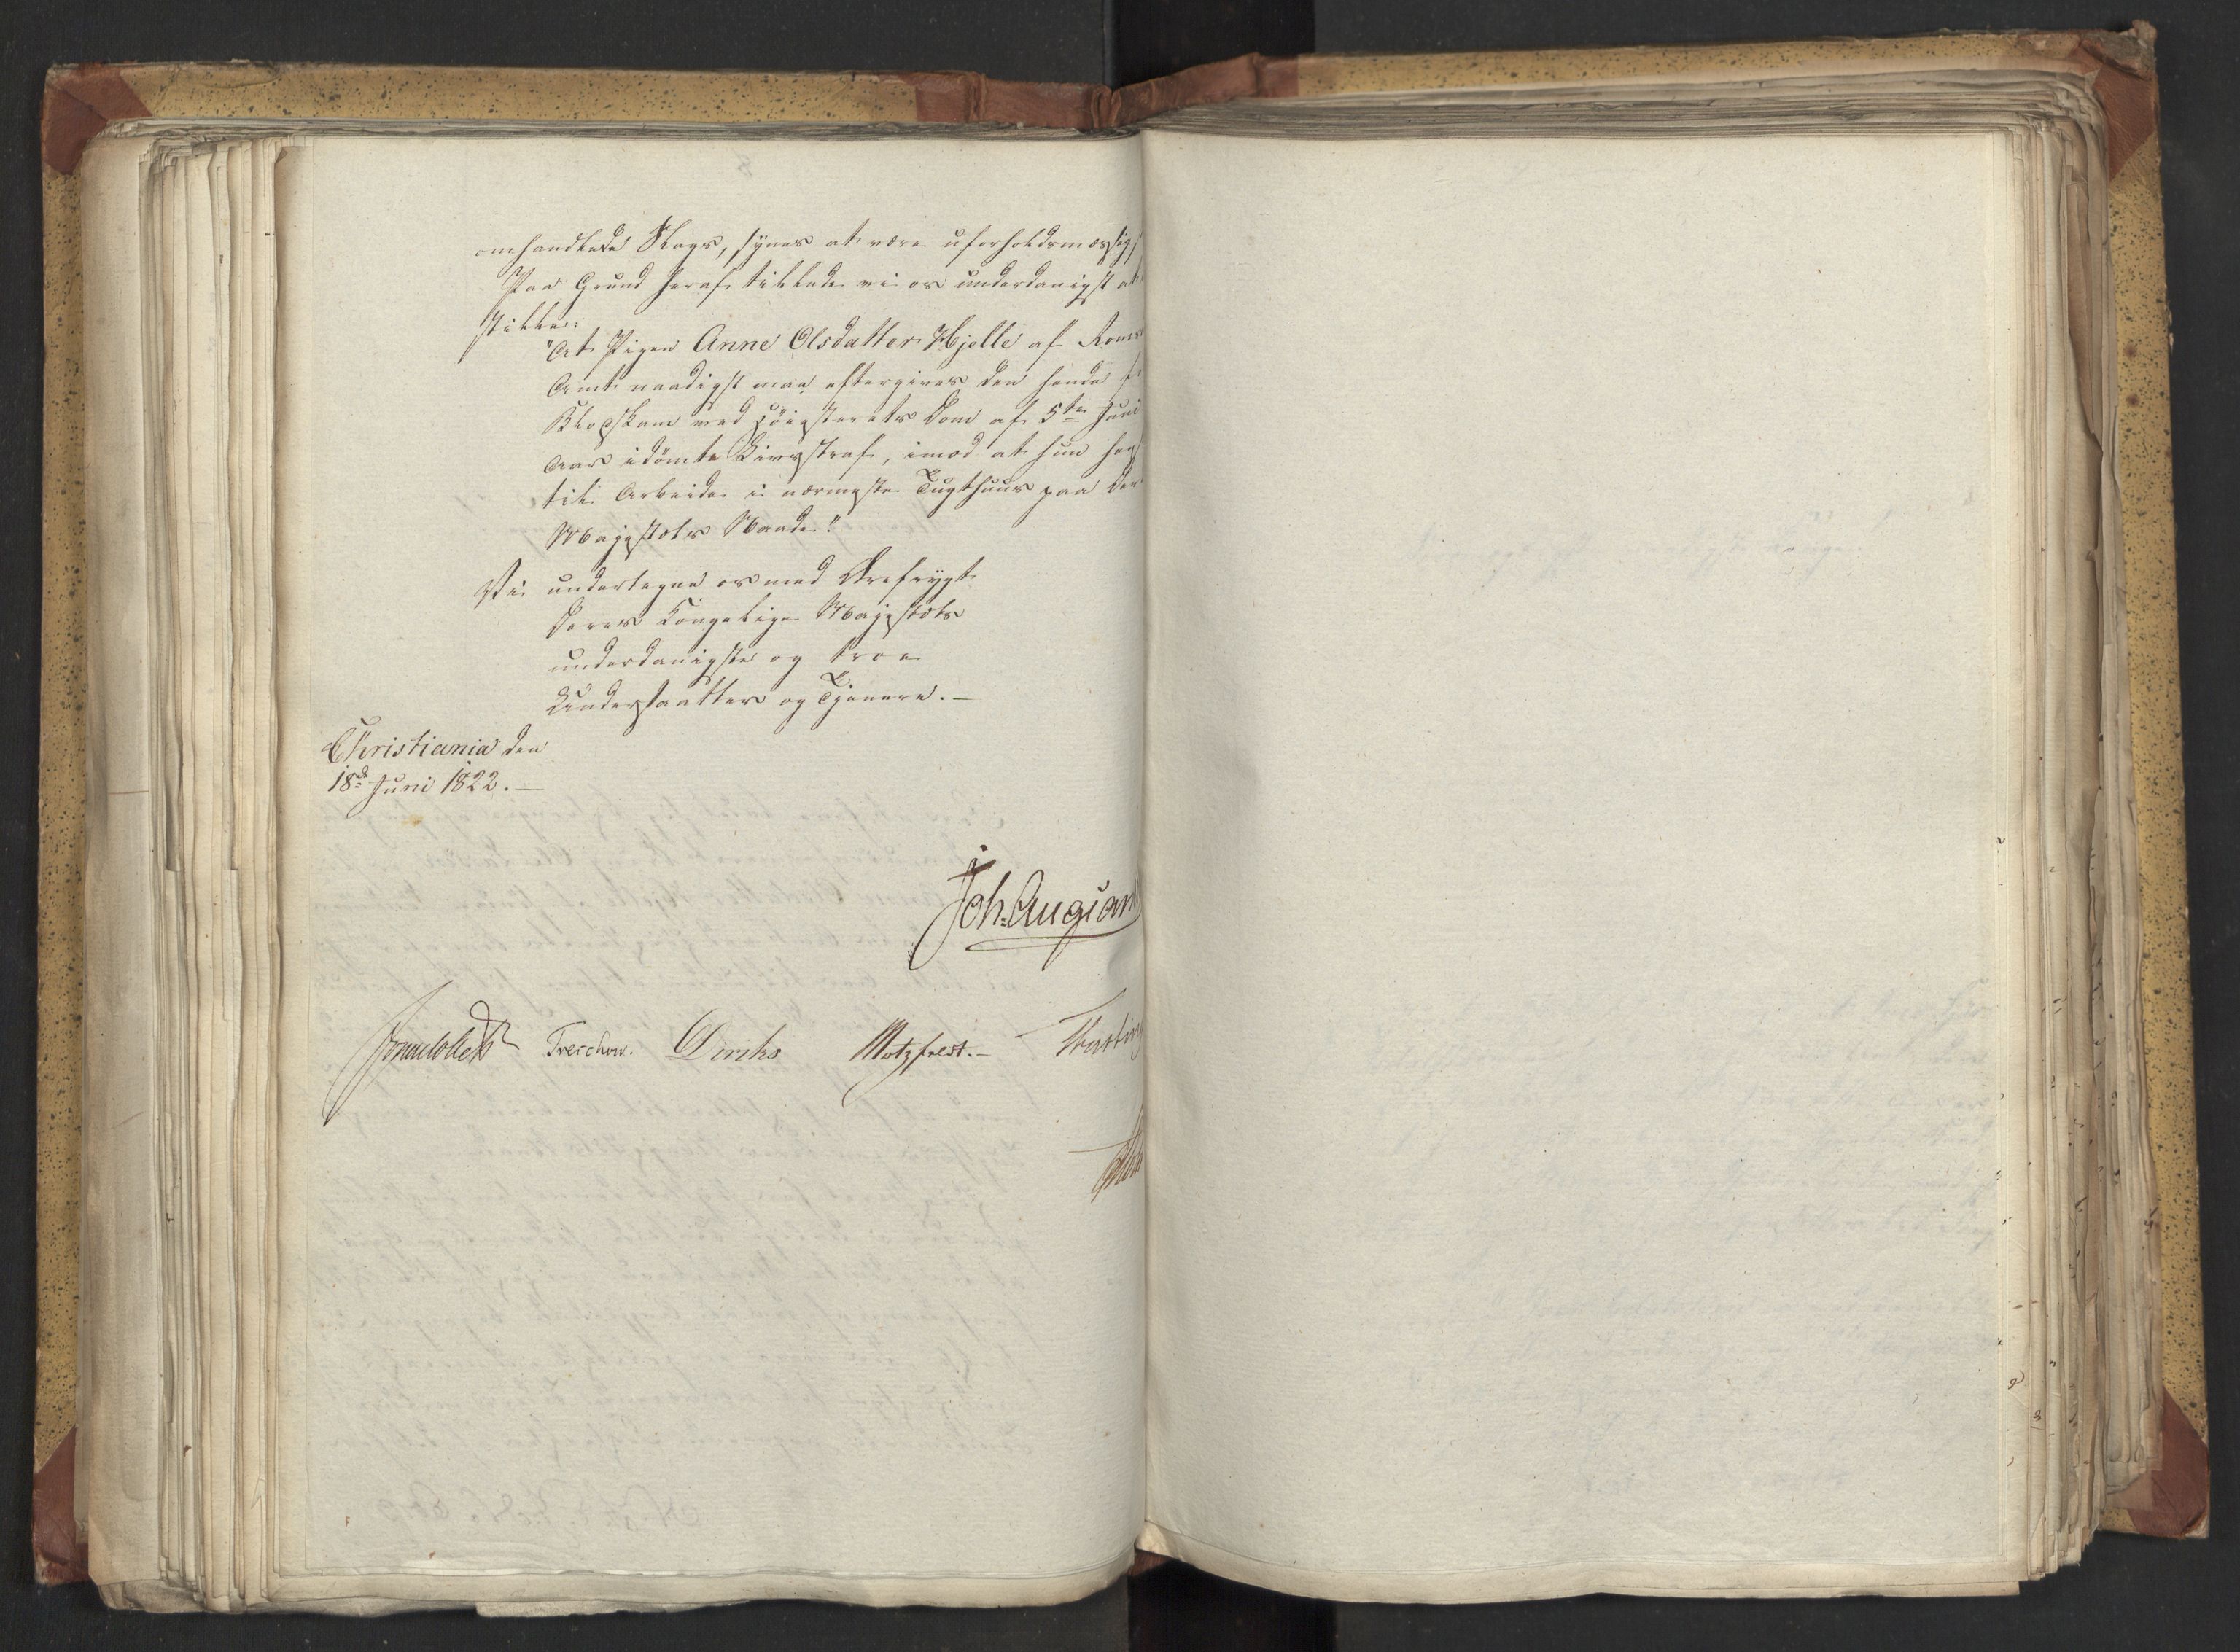 omhandlede Slags, synes at være uforholdsmæssig
Paa Grund heraf tillade vi os underdanigst at
stille:
"At Pigen Anne Olsdatter Hjelle af Roms
Amt naadigst maa eftergives den hende
med Høiesterets Dom af 5te Juni
Aar idømte Livsstraf, imod at hun
til Arbeide i nærmeste Tugthuus paa Der
Majestæts Naade."
Vi undertegne os med Ærefrygt
Deres Kongelige Majestæts
underdanigste og troe
Undersaatter og Tjenere.—
Christiania den
18de Juni 1822.—
Joh: Aug:
Sommelhielm Treschow. Diriks Motzfeldt.—